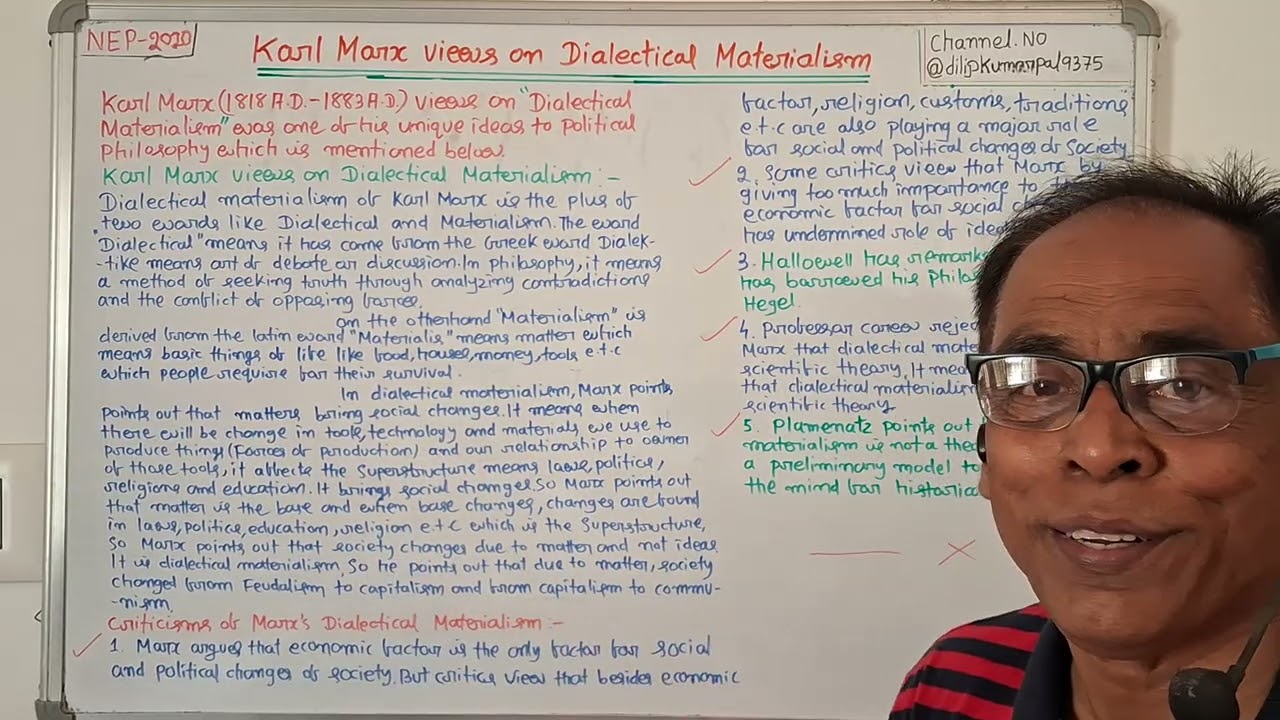 NEP-2020
Karl Marx views on Dialectical Materialism
Channel.No
@dilipkumarpal9375
Karl Marx (1818 A.D.-1883 A.D.) views on "Dialectical
Materialism" was one of his unique ideas to political
Philosophy which is mentioned below.
Karl Marx views on Dialectical Materialism:-
Dialectical materialism of Karl Marx is the plus of
two words like Dialectical and Materialism. The word
"Dialectical" means it has come from the Greek word Dialek-
-tike means art of debate or discussion. In philosophy, it means
a method of seeking truth through analyzing contradictions
and the conflict of opposing forces.
on the otherhand "Materialism" is
derived from the latin word "Materialis" means matter which
means basic things of life like food, houses, money, tools e.t.c
which people require for their survival.
In dialectical materialism, Marx points
points out that matters bring social changes. It means when
there will be change in tools, technology and materials we use to
produce things (Forces of production) and our relationship to owner
of those tools, it affects the Superstructure means laws, politics,
religions and education. It brings social changes. So Marx points out
that matter is the base and when base changes, changes are found
in laws, politics, education, religion e.t.c which is the Superstructure,
So Marx points out that society changes due to matter and not ideas.
It is dialectical materialism. So he points out that due to matter, society
changed from Feudalism to capitalism and from capitalism to commu-
-nism.
Criticisms of Marx's Dialectical Materialism:-
1. Marx argues that economic factor is the only factor for social
and political changes of society. But critics view that besides economic
factor, religion, customs, traditions
e.t.c are also playing a major role
for social and political changes of Society
2. Some critics view that Marx by
giving too much importance to
economic factor for social
has undermined role of
3. Hallowell has
has borrowed his
Hegel.
4. Professor carew
Marx that dialectical
scientific theory. It
that dialectical
scientific theory
5. Plamenatz points out
materialism is not a
a preliminary model to
the mind for